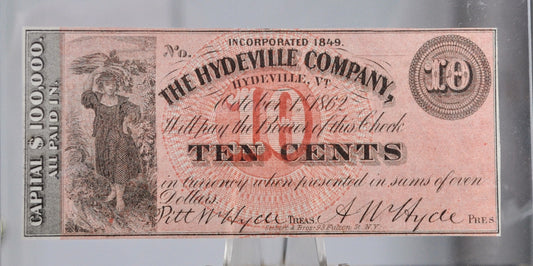 CAPITAL $100,000.
ALL PAID IN.
No.
INCORPORATED 1849.
THE HYDEVILLE COMPANY,
HYDEVILLE, VT
10
October 1, 1862
Will pay the Bearer of this Check
10
TEN CENTS
in Currency when presented in sums of even
Dollars.
Pitt W Hyde TREAS. A W Hyde PRES
& Bro. 93 Fulton St. N.Y.